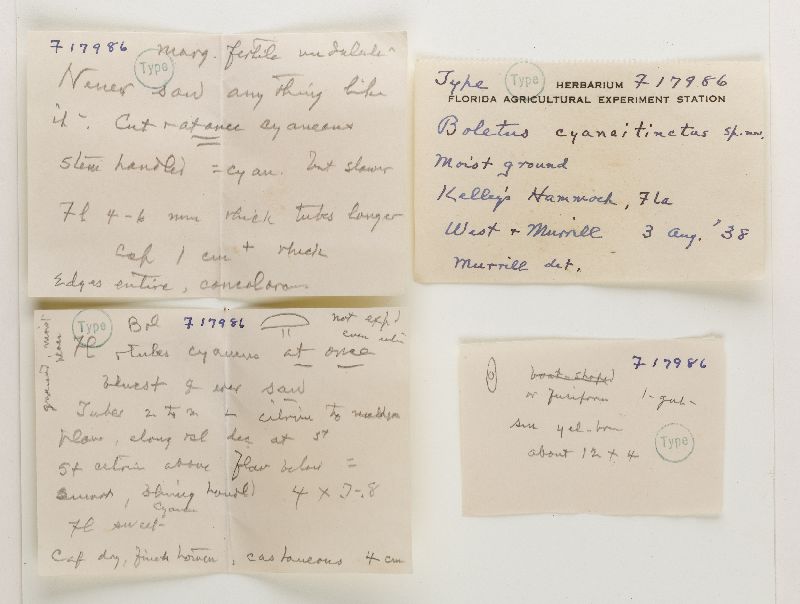 F 17986 marg. fertile undulate
Type
Never saw any thing like
it. Cut + at once cyaneous
Stem handled = cyan. but slower
Fl 4-6 mm thick tubes longer
cap 1 cm + thick
Edges entire, concolorous
Type HERBARIUM F 17986
Type
FLORIDA AGRICULTURAL EXPERIMENT STATION
Boletus cyaneitinctus sp. nov.
Moist ground
Kelley's Hammock, Fla
West + Murrill 3 Aug. '38
Murrill det.
Type Bol F 17986 not exp'd
even
Fl + tubes cyaneus at once
bluest I ever saw
Tubes citrin to
plane, elong rel dec at st
St citrin above flav below =
smooth, bluing handl 4 x .7-.8
cyan
Fl sweet
Cap dry, finely toment, castaneous 4 cm
ground, moist
F 17986
boat-shaped
or fusiform 1-gut-
sm yel-brn
about 12 x 4
Type